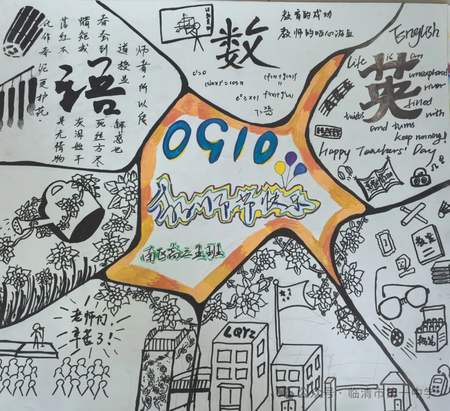 师者,所以传
道授业
解惑也
春蚕到
死丝方尽
蜡炬成
灰泪始干
落红不
是无情物
化作春泥更护花
语
数
教育的成功
教师的呕心沥血
c'=0
(sinx)'=cosx
English
英
Life is an
unexplored
river
filled
with
twists
and turns
keep running!
Happy Teachers' Day
0910
教师节快乐
老师们
辛苦了!
LQYZ
公众号·临清市